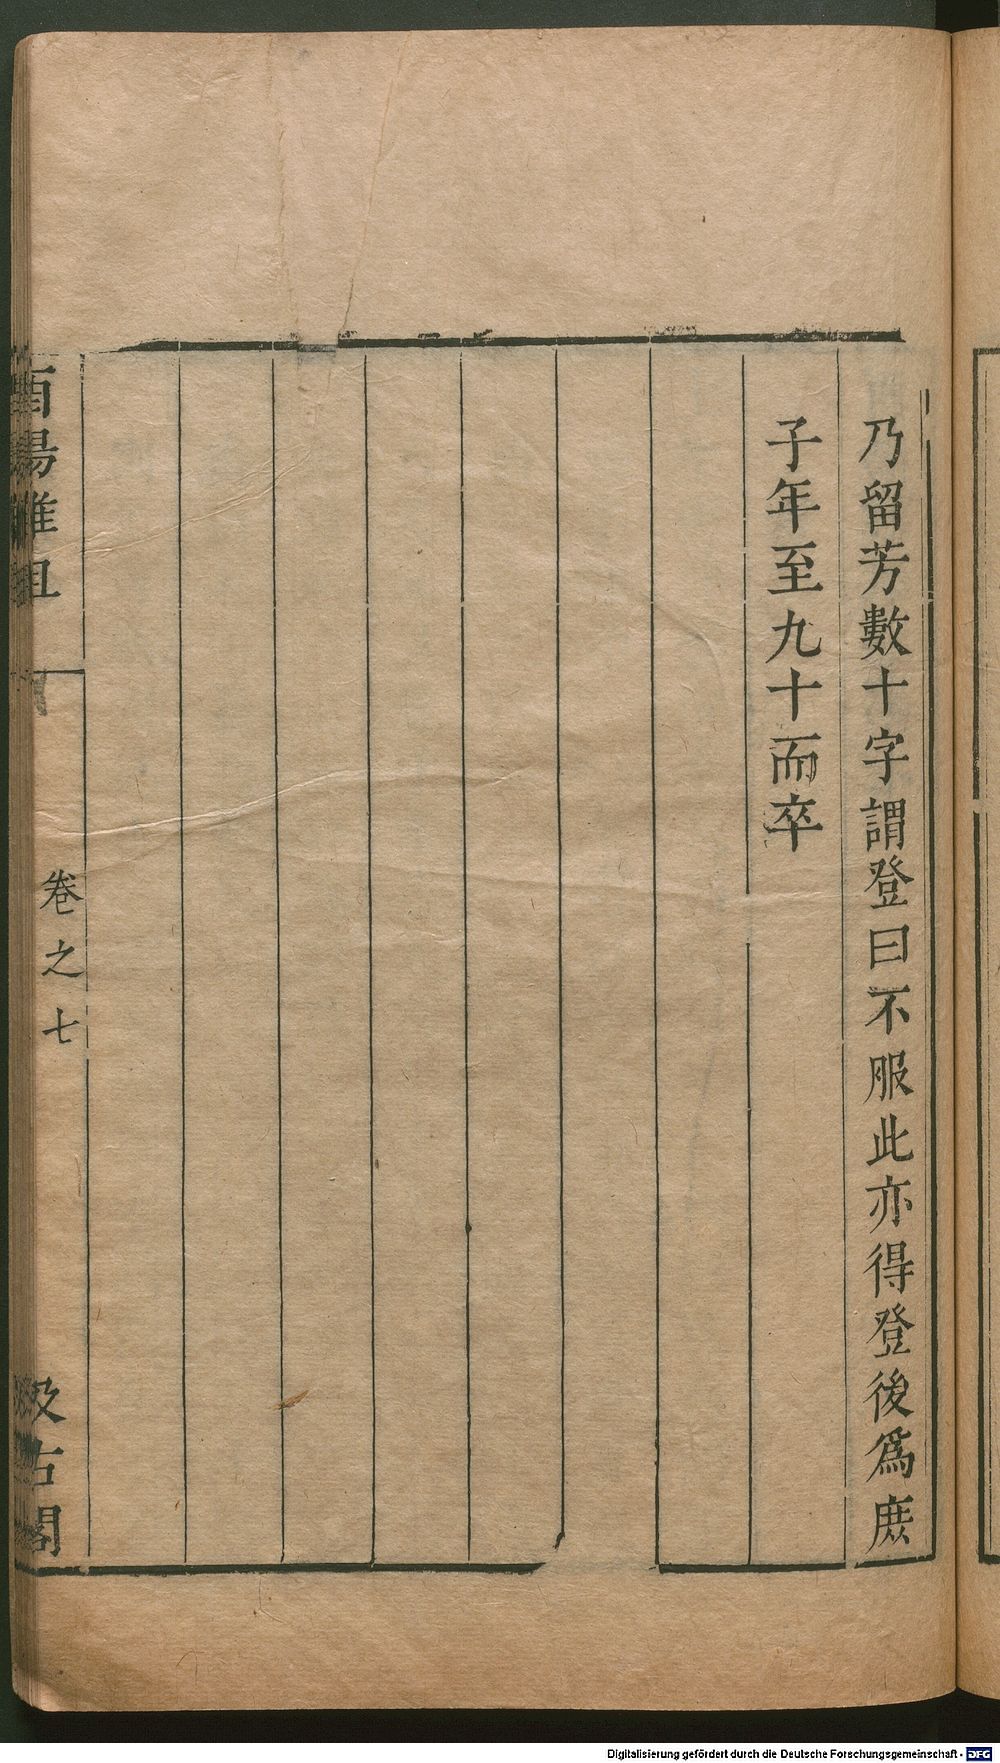 乃留芳數十字謂登曰不服此亦得登後爲庶
子年至九十而卒
酉陽雜俎
卷之七
汲古閣
Digitalisierung gefördert durch die Deutsche Forschungsgemeinschaft - DFG